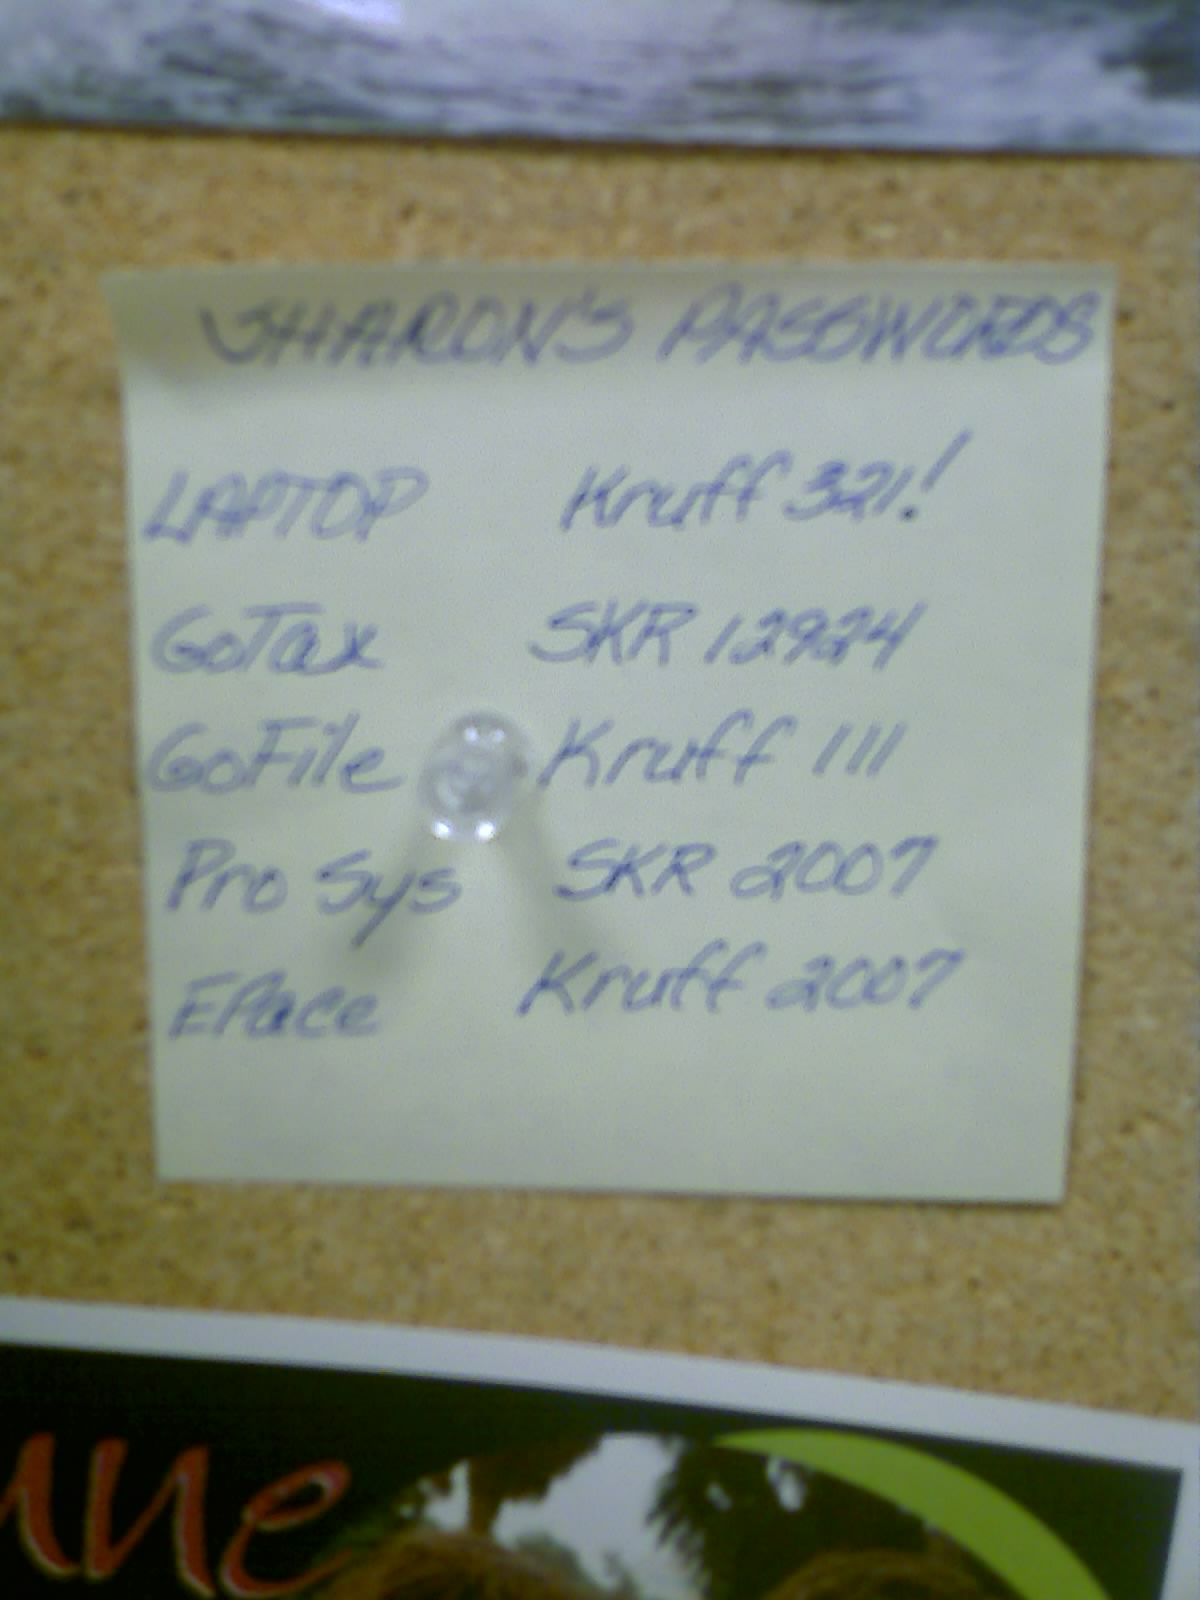 SHARON'S PASSWORDS
LAPTOP Kruff 321!
GoTax SKR 12924
GoFile Kruff 111
Pro Sys SKR 2007
EPace Kruff 2007
une